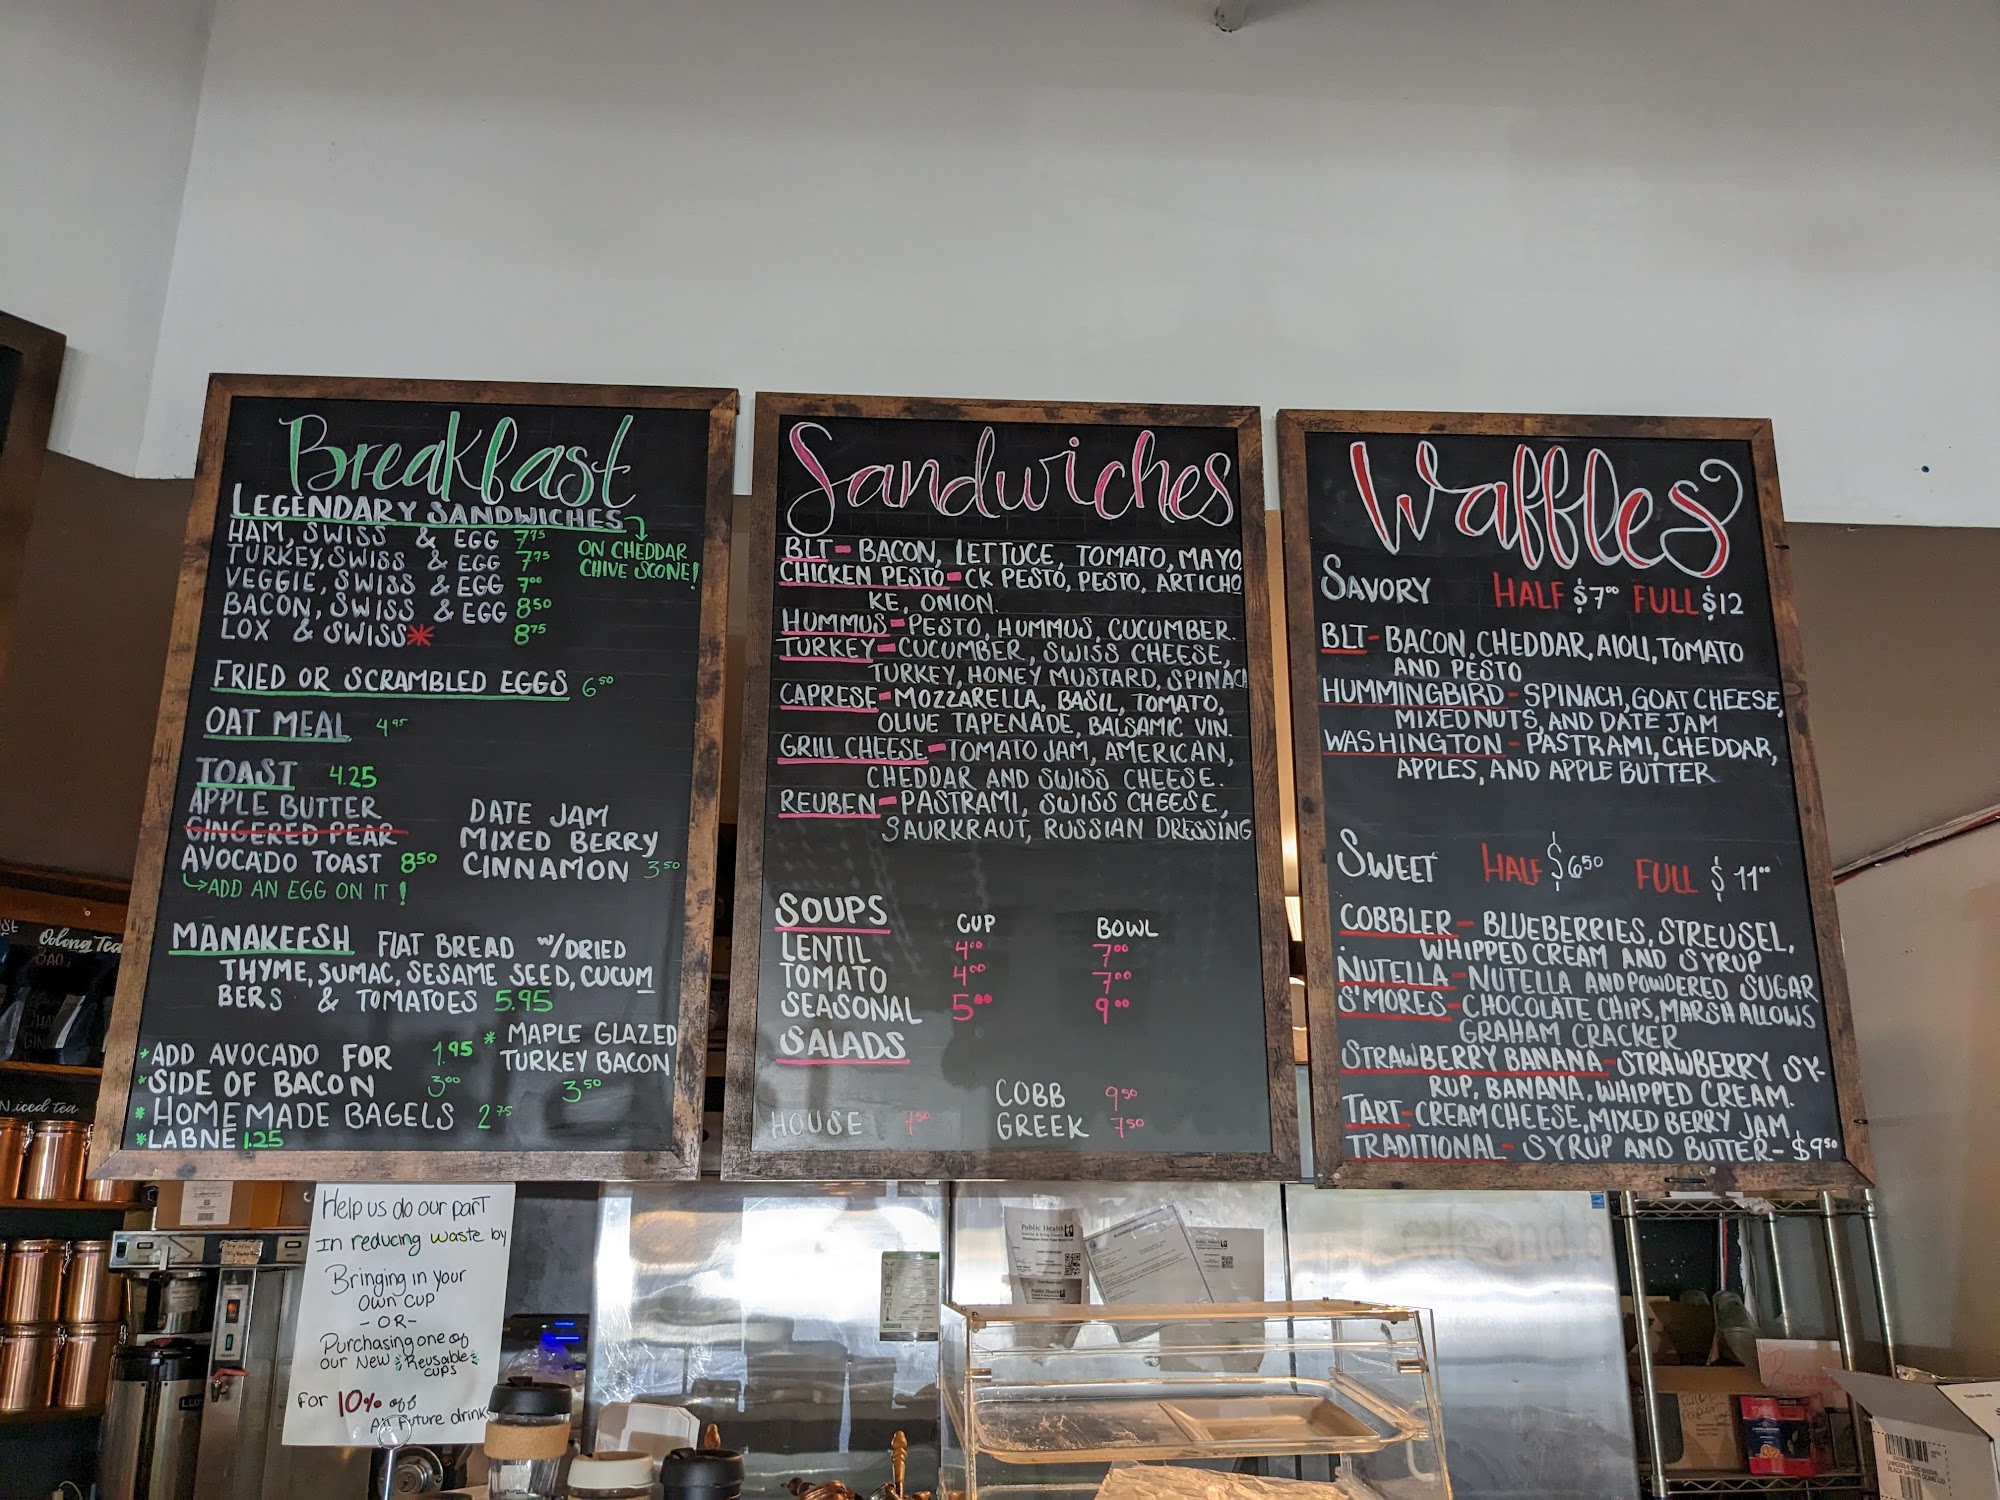 Breakfast
LEGENDARY SANDWICHES
HAM, SWISS & EGG 7⁷⁵
TURKEY, SWISS & EGG 7⁷⁵
VEGGIE, SWISS & EGG 7⁰⁰
BACON, SWISS & EGG 8⁵⁰
LOX & SWISS* 8⁷⁵
ON CHEDDAR
CHIVE SCONE!
FRIED OR SCRAMBLED EGGS 6⁵⁰
OAT MEAL 4⁹⁵
TOAST 4.25
APPLE BUTTER
GINGERED PEAR
AVOCADO TOAST 8⁵⁰
ADD AN EGG ON IT!
DATE JAM
MIXED BERRY
CINNAMON 3⁵⁰
MANAKEESH FLAT BREAD W/DRIED
THYME, SUMAC, SESAME SEED, CUCUM
BERS & TOMATOES 5.95
*ADD AVOCADO FOR 1.95
*SIDE OF BACON 3⁰⁰
*HOMEMADE BAGELS 2⁷⁵
*LABNE 1.25
* MAPLE GLAZED
TURKEY BACON
3⁵⁰
Sandwiches
BLT - BACON, LETTUCE, TOMATO, MAYO
CHICKEN PESTO - CK PESTO, PESTO, ARTICHO
KE, ONION.
HUMMUS - PESTO, HUMMUS, CUCUMBER.
TURKEY - CUCUMBER, SWISS CHEESE,
TURKEY, HONEY MUSTARD, SPINACH
CAPRESE - MOZZARELLA, BASIL, TOMATO,
OLIVE TAPENADE, BALSAMIC VIN.
GRILL CHEESE - TOMATO JAM, AMERICAN,
CHEDDAR AND SWISS CHEESE.
REUBEN - PASTRAMI, SWISS CHEESE,
SAURKRAUT, RUSSIAN DRESSING
SOUPS CUP BOWL
LENTIL 4⁰⁰ 7⁰⁰
TOMATO 4⁰⁰ 7⁰⁰
SEASONAL 5⁰⁰ 9⁰⁰
SALADS
COBB 9⁵⁰
HOUSE 7⁵⁰ GREEK 7⁵⁰
Waffles
SAVORY HALF $7⁰⁰ FULL $12
BLT - BACON, CHEDDAR, AIOLI, TOMATO
AND PESTO
HUMMINGBIRD - SPINACH, GOAT CHEESE,
MIXED NUTS, AND DATE JAM
WASHINGTON - PASTRAMI, CHEDDAR,
APPLES, AND APPLE BUTTER
SWEET HALF $6⁵⁰ FULL $11⁰⁰
COBBLER - BLUEBERRIES, STREUSEL,
WHIPPED CREAM AND SYRUP
NUTELLA - NUTELLA AND POWDERED SUGAR
S'MORES - CHOCOLATE CHIPS, MARSHALLOWS
GRAHAM CRACKER
STRAWBERRY BANANA - STRAWBERRY SY-
RUP, BANANA, WHIPPED CREAM.
TART - CREAM CHEESE, MIXED BERRY JAM
TRADITIONAL - SYRUP AND BUTTER - $9⁵⁰
Oolong Tea
iced tea
Help us do our part
In reducing waste by
Bringing in your
own cup
- OR -
Purchasing one of
our New Reusable
cups
for 10% off
All Future drinks
Public Health
Public Health